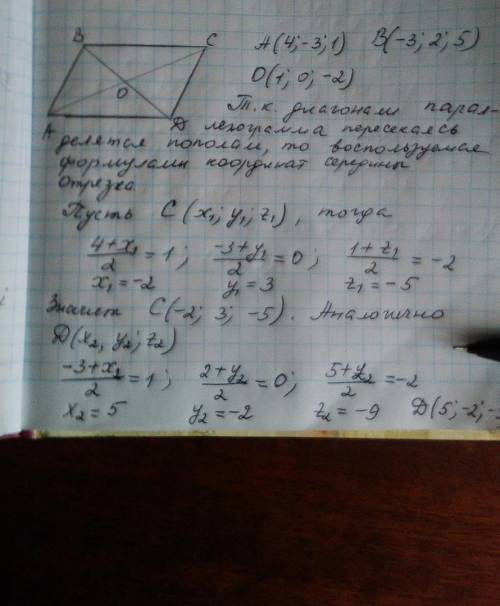 B C A(4;-3;1) B(-3;2;5)
O O(1;0;-2)
A Д Т.к. диагонали парал-
лелограмма пересекаясь
делятся пополам, то воспользуемся
формулами координат середины
отрезка.
Пусть C(x₁; y₁; z₁), тогда
(4+x₁)/2 = 1; (-3+y₁)/2 = 0; (1+z₁)/2 = -2
x₁ = -2 y₁ = 3 z₁ = -5
Значит C(-2; 3; -5). Аналогично
Д(x₂, y₂; z₂)
(-3+x₂)/2 = 1; (2+y₂)/2 = 0; (5+y₂)/2 = -2
x₂ = 5 y₂ = -2 z₂ = -9 Д(5;-2;-